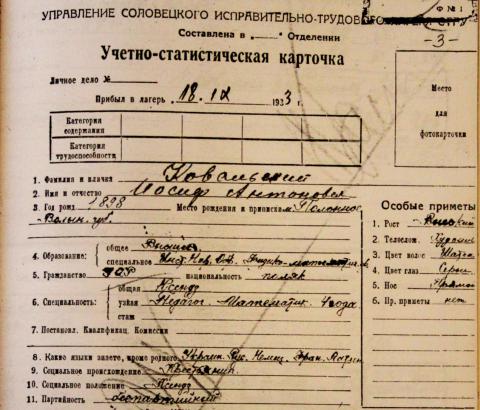 УПРАВЛЕНИЕ СОЛОВЕЦКОГО ИСПРАВИТЕЛЬНО-ТРУДОВОГО ОГПУ
Ф № 1
Составлена в „ “ Отделении
-3-
Учетно-статистическая карточка
Личное дело №
Прибыл в лагерь 18.IX 1933 г.
Место для фотокарточки
Категория содержания
Категория трудоспособности
1. Фамилия и кличка Ковальский
2. Имя и отчество Иосиф Антонович
3. Год рожд 1898 Место рождения и приписки Полонное
Волын. губ.
4. Образование: общее Высшее
специальное Инст. Нар. Об. Физико-математич.
5. Гражданство СССР национальность поляк
6. Специальность: общая Ксендз
узкая Педагог. Математик. 4 года
стаж
7. Постановл. Квалификац. Комиссии
8. Какие языки знаете, кроме родного Украин. Рус. Немец. Фран. Латин
9. Социальное происхождение Крестьянин
10. Социальное положение Ксендз
11. Партийность беспартийный
Особые приметы
1. Рост Высокий
2. Телеслож. Худощав
3. Цвет волос Шатен
4. Цвет глаз Серые
5. Нос Прямой
6. Пр. приметы нет